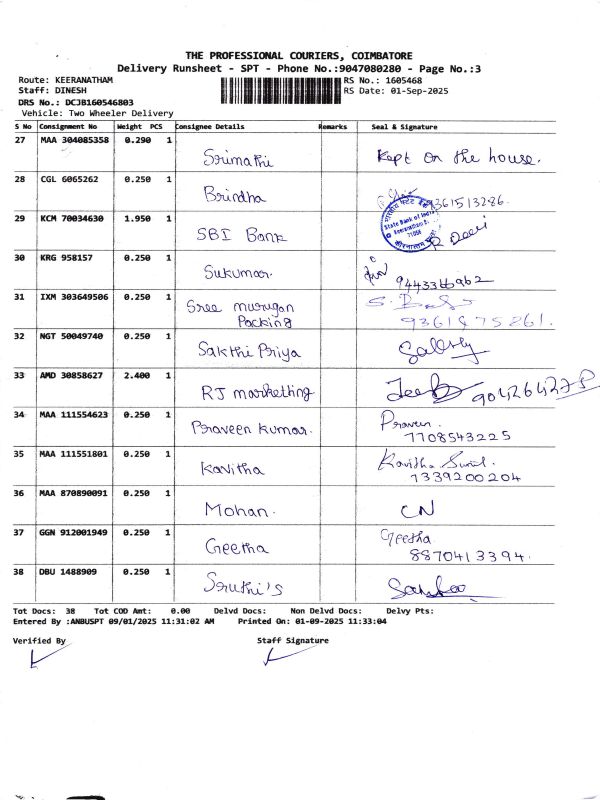 THE PROFESSIONAL COURIERS, COIMBATORE
Delivery Runsheet - SPT - Phone No.:9047080280 - Page No.:3
Route: KEERANATHAM
RS No.: 1605468
Staff: DINESH
RS Date: 01-Sep-2025
DRS No.: DCJB160546803
Vehicle: Two Wheeler Delivery
S No Consignment No Weight PCS Consignee Details Remarks Seal & Signature
27 MAA 304085358 0.290 1 Srimathi Kept on the house.
28 CGL 6065262 0.250 1 Brindha 9361513286.
29 KCM 70034630 1.950 1 SBI Bank State Bank of India R Devi
30 KRG 958157 0.250 1 Sukumar. 9443366962
31 IXM 303649506 0.250 1 Sree murugan
Packing 9361475261.
32 NGT 50049740 0.250 1 Sakthi Priya
33 AMD 30858627 2.400 1 RJ marketting
34 MAA 111554623 0.250 1 Praveen kumar. Praveen.
7708543225
35 MAA 111551801 0.250 1 Kavitha Kavitha
7339200204
36 MAA 870890091 0.250 1 Mohan. CN
37 GGN 912001949 0.250 1 Geetha Geetha
8870413394.
38 DBU 1488909 0.250 1 Sruthi's
Tot Docs: 38 Tot COD Amt: 0.00 Delvd Docs: Non Delvd Docs: Delvy Pts:
Entered By :ANBUSPT 09/01/2025 11:31:02 AM Printed On: 01-09-2025 11:33:04
Verified By Staff Signature